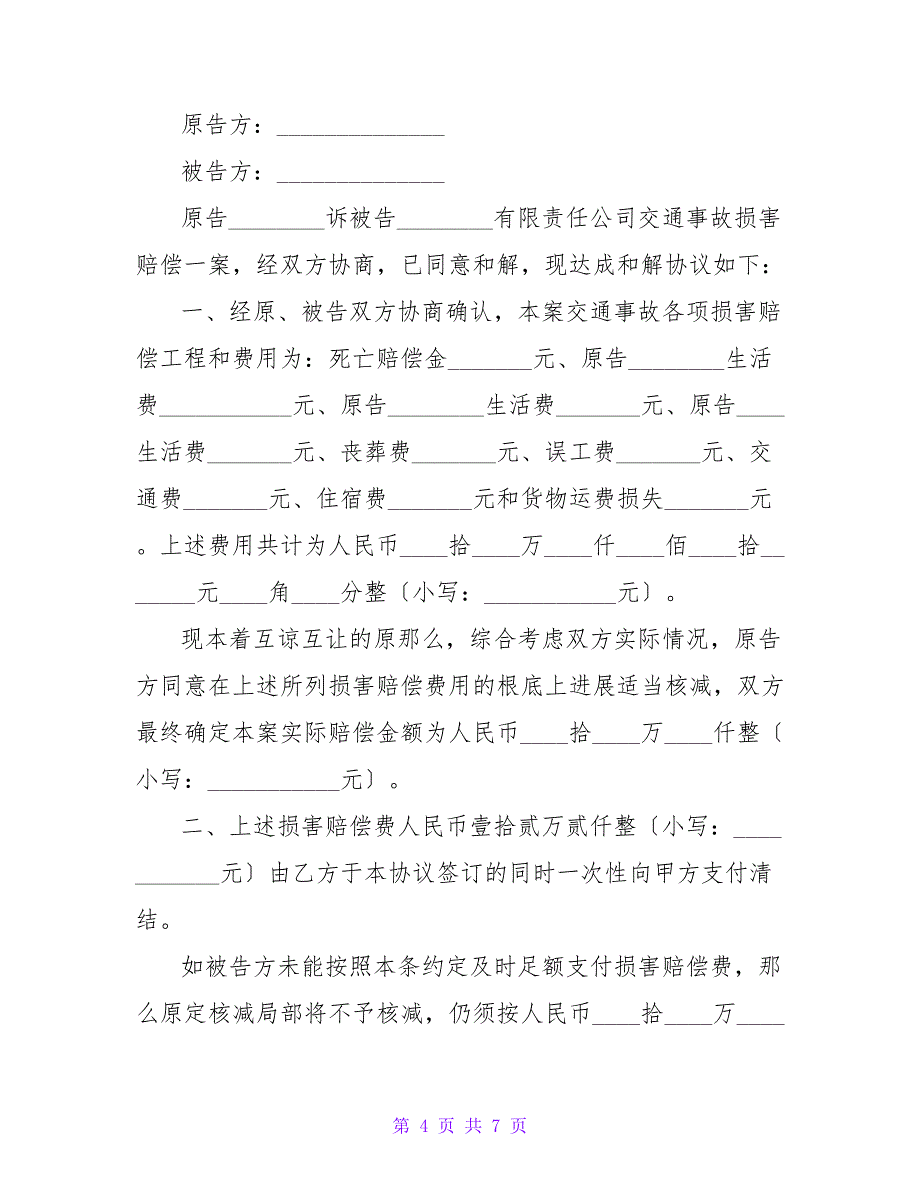 原告方：______________
被告方：______________
原告________诉被告________有限责任公司交通事故损害
赔偿一案，经双方协商，已同意和解，现达成和解协议如下：
一、经原、被告双方协商确认，本案交通事故各项损害赔
偿工程和费用为：死亡赔偿金_______元、原告________生活
费___________元、原告________生活费_______元、原告____
生活费_______元、丧葬费_______元、误工费_______元、交
通费_______元、住宿费_______元和货物运费损失_______元
。上述费用共计为人民币____拾____万____仟____佰____拾__
_____元____角____分整〔小写：___________元〕。
现本着互谅互让的原那么，综合考虑双方实际情况，原告
方同意在上述所列损害赔偿费用的根底上进展适当核减，双方
最终确定本案实际赔偿金额为人民币____拾____万____仟整〔
小写：___________元〕。
二、上述损害赔偿费人民币壹拾贰万贰仟整〔小写：____
_______元〕由乙方于本协议签订的同时一次性向甲方支付清
结。
如被告方未能按照本条约定及时足额支付损害赔偿费，那
么原定核减局部将不予核减，仍须按人民币____拾____万____
第 4 页 共 7 页